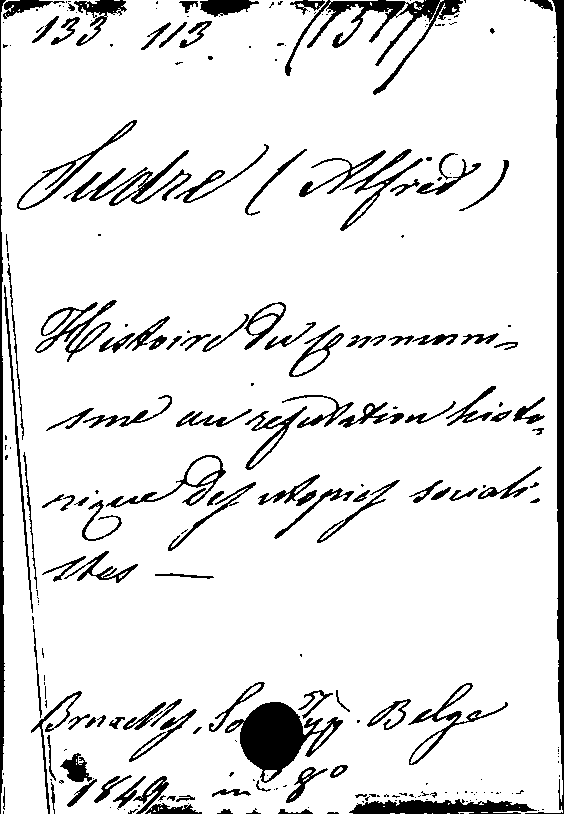 133. 113 (1517)
Sudre (Alfred)
Histoire du Communi-
sme ou refutation histo-
rique des utopies sociali-
stes —
Bruxelles, So Typ. Belge
1849 in 8°